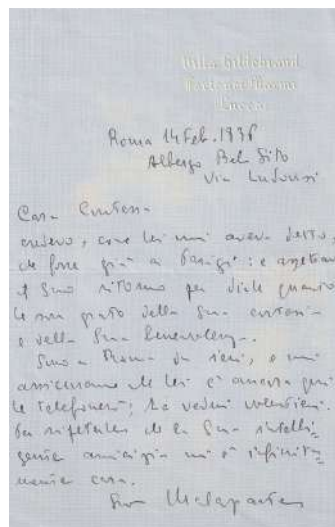 Villa Hildebrand
Forte dei Marmi
Lucca
Roma 14 Feb. 1938
Albergo Bel Sito
Via Ludovisi
Cara Contessa
credevo, come lei mi aveva detto,
che fosse già a Parigi: e aspettavo
il Suo ritorno per dirle quanto
le son grato della Sua cortesia
e della Sua benevolenza.
Sono a Roma da ieri, e mi
assicurano che lei è ancora qui.
Le telefonerò; La vedrei volentieri.
per ripeterle che la Sua intelli-
gente amicizia mi è infinita-
mente cara.
Suo Malaparte